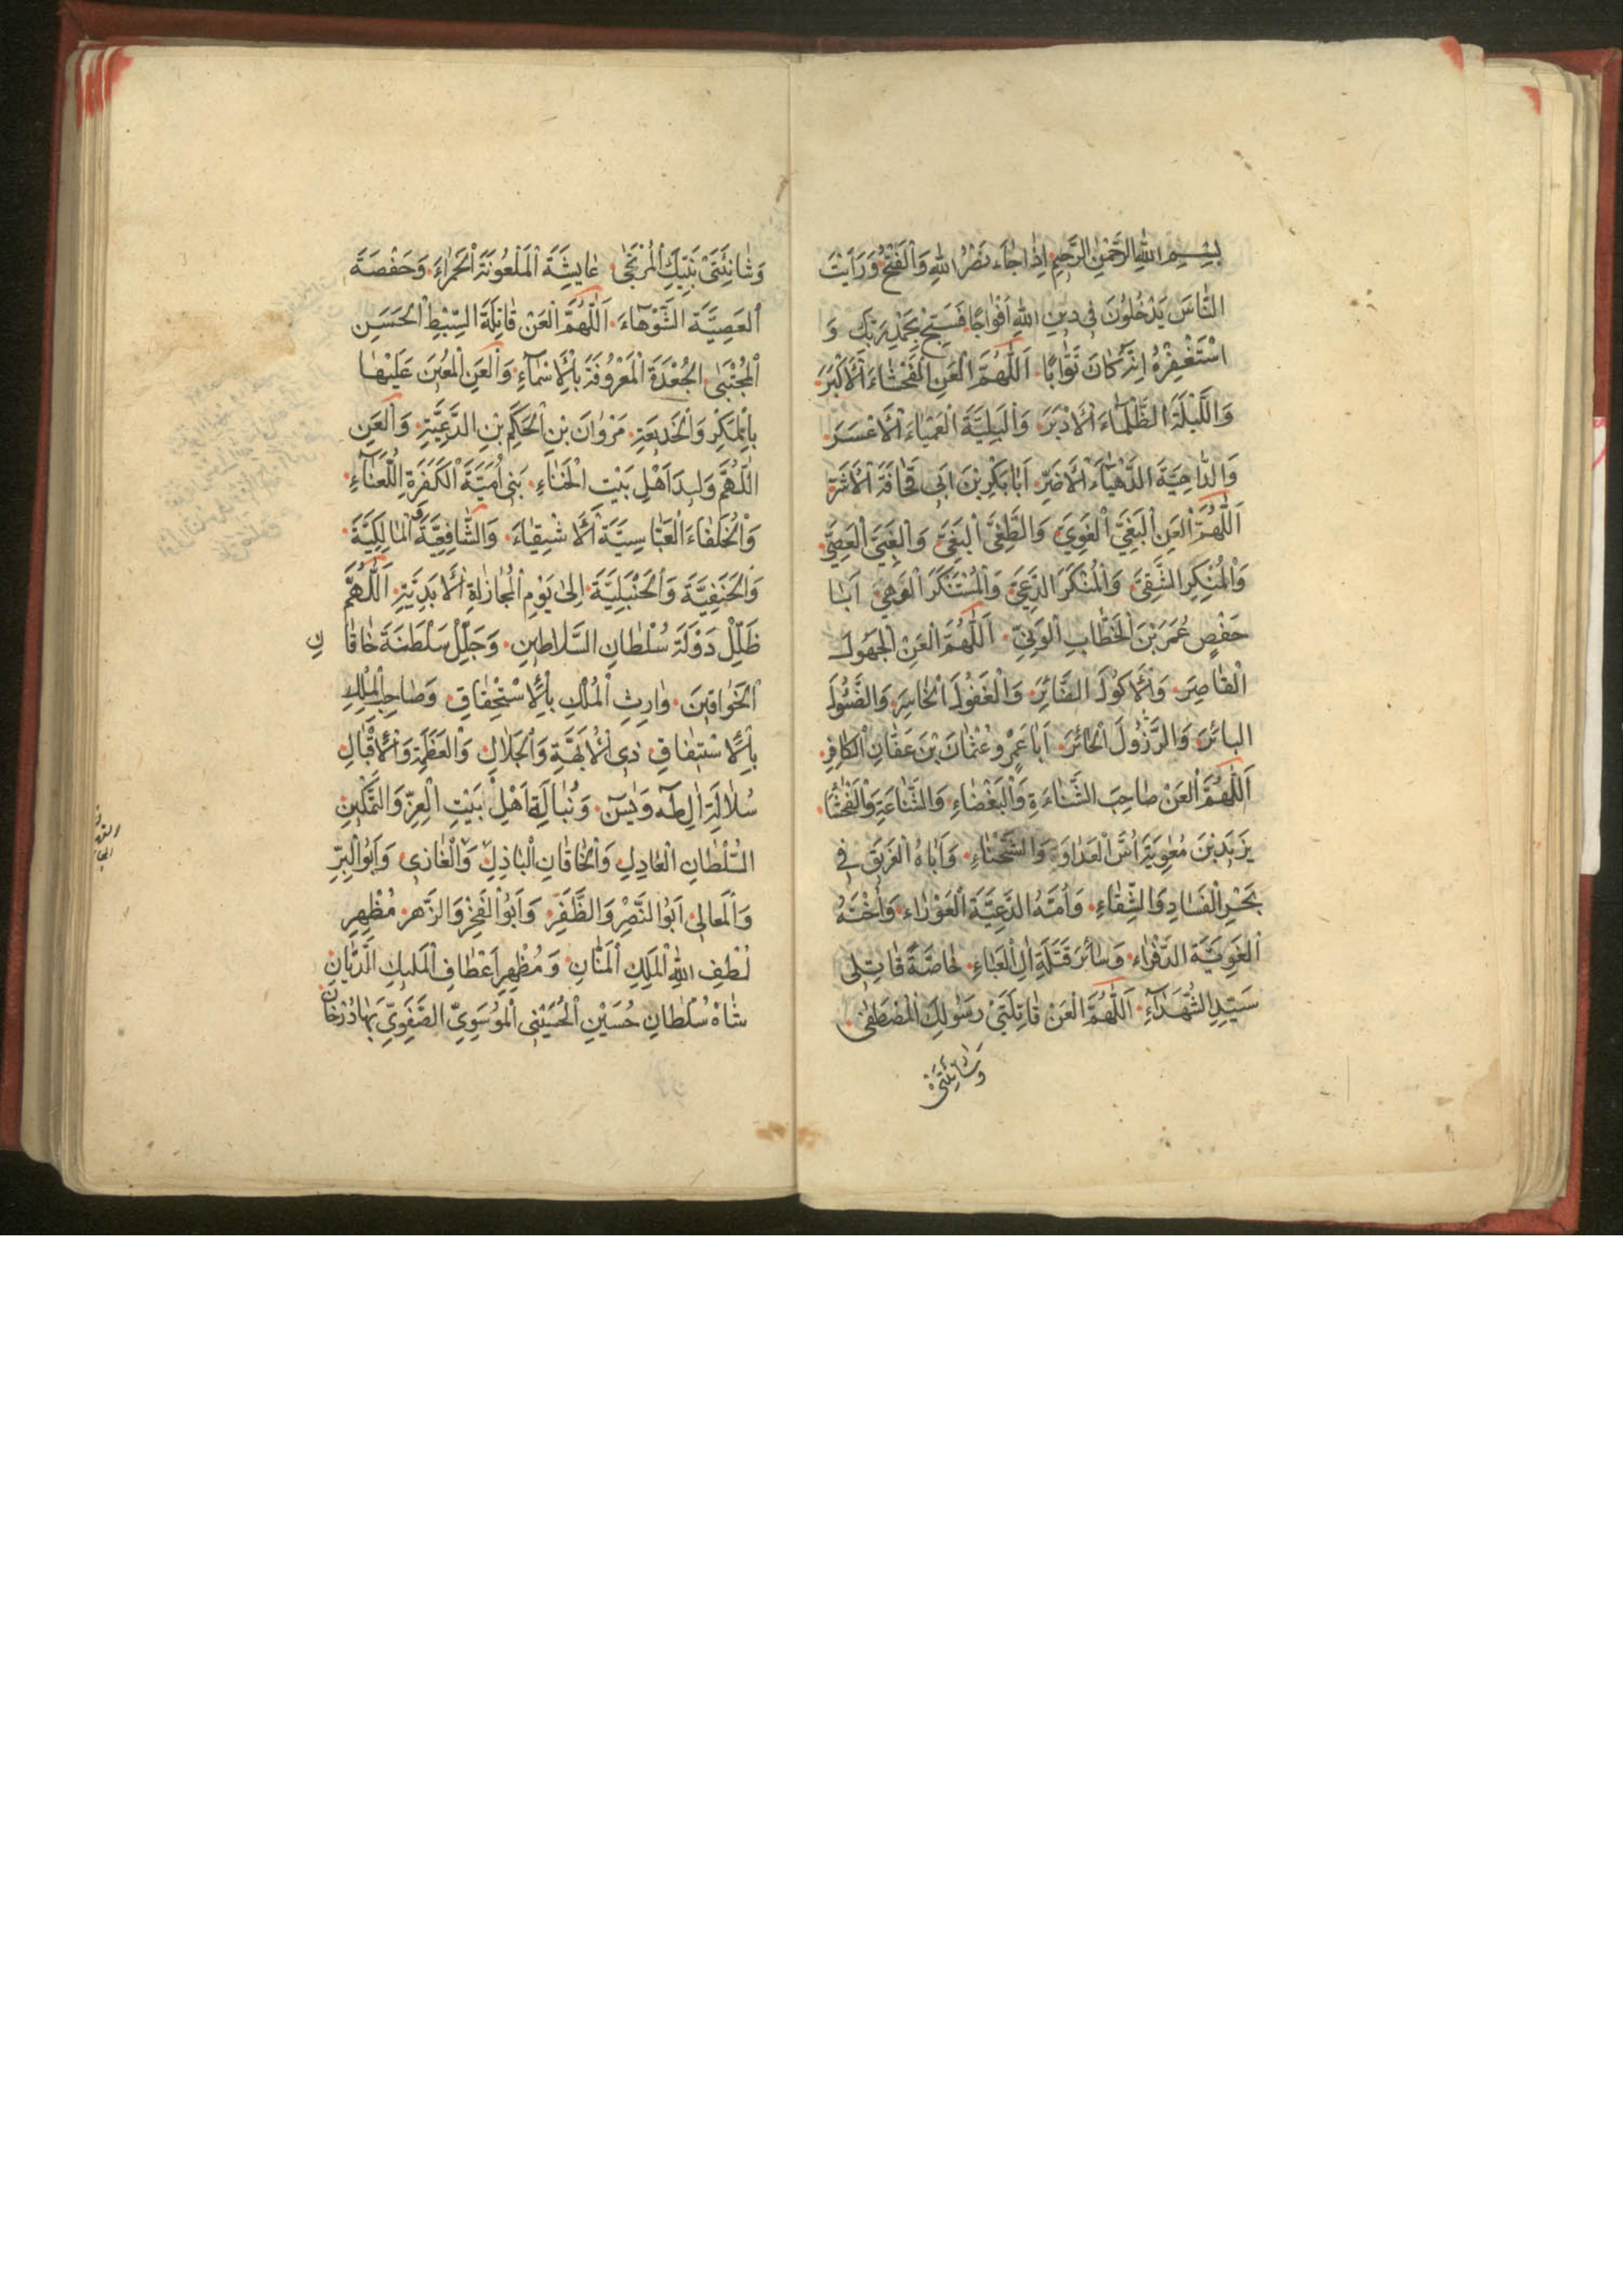 بِسْمِ اللهِ الرَّحْمٰنِ الرَّحِيمِ اِذَا جَاءَ نَصْرُ اللهِ وَالْفَتْحُ وَرَاَيْتَ
النَّاسَ يَدْخُلُونَ فِى دِينِ اللهِ اَفْوَاجًا فَسَبِّحْ بِحَمْدِ رَبِّكَ وَ
اسْتَغْفِرْهُ اِنَّهُ كَانَ تَوَّابًا اَللّٰهُمَّ الْعَنِ الْفَحْشَاءَ الْاَكْبَرَ
وَاللَّيْلَةَ الظَّلْمَاءَ الْاَدْبَرَ وَالْبَلِيَّةَ الْعَمْيَاءَ الْاَعْسَرَ
وَالدَّاهِيَةَ الدَّهْيَاءَ الْاَضَرَّ اَبَا بَكْرِ بْنَ اَبِى قُحَافَةَ
اَللّٰهُمَّ الْعَنِ الْبَغِيَّ الْغَوِيَّ وَالطَّغِىَّ الْبَغِيَّ وَالْغَبِىَّ الْعَصِىَّ
وَالْمُنْكِرَ الشَّقِىَّ وَالْمُنْكَرَ الدَّعِىَّ وَالْمُسْتَنْكَرَ اَبَا
حَفْصٍ عُمَرَ بْنَ الْخَطَّابِ اَللّٰهُمَّ الْعَنِ الْجَهُولَ
الْقَاصِرَ وَالْاَكُولَ وَالْغَفُولَ الْخَاسِرَ
الْبَائِرَ وَالرَّذُولَ الْحَائِرَ اَبَا عَمْرٍو عُثْمَانَ بْنَ عَفَّانِ الْكَافِرِ
اَللّٰهُمَّ الْعَنْ صَاحِبَ الشَّنَاءَةِ وَالْبَغْضَاءِ وَالشَّنَاعَةِ وَالْفَحْشَا
يَزِيدَ بْنَ مُعٰوِيَةَ اُسَّ الْعَدَاوَةِ وَالشَّحْنَاءِ وَاَبَاهُ الْغَرِيقَ فِى
بَحْرِ الْفَسَادِ وَالشِّقَاءِ وَاُمَّهُ الدَّعِيَّةَ الْعَوْرَاءَ وَاُخْتَهُ
الْغَوِيَّةَ الدَّفْرَاءَ وَسَائِرَ قَتَلَةِ اٰلِ الْعَبَاءِ خَاصَّةً قَاتِلِى
سَيِّدِ الشُّهَدَاءِ اَللّٰهُمَّ الْعَنْ قَاتِلَتَىْ رَسُولِكَ الْمُصْطَفٰى
وَشَانِئَتَىْ
وَشَانِئَتَىْ نَبِيِّكَ الْمُرْتَجٰى عَايِشَةَ الْمَلْعُونَةَ الْحَمْرَاءَ وَحَفْصَةَ
الْعَصِيَّةَ الشَّوْهَاءَ اَللّٰهُمَّ الْعَنْ قَاتِلَةَ السِّبْطِ الْحَسَنِ
الْمُجْتَبٰى الْجُعْدَةَ الْمَعْرُوفَةَ بِالْاَسْمَاءِ وَالْعَنِ الْمُعِينَ عَلَيْهَا
بِالْمَكْرِ وَالْخَدِيعَةِ مَرْوَانَ بْنِ الْحَكَمِ بْنِ الدَّعِيَّةِ وَالْعَنِ
اللّٰهُمَّ وَلِيدَ اَهْلِ بَيْتِ الْخَنَاءِ بَنِى اُمَيَّةَ الْكَفَرَةِ اللُّعَنَاءِ
وَالْخُلَفَاءَ الْعَبَّاسِيَّةَ الْاَشْقِيَاءَ وَالشَّافِعِيَّةَ وَالْمَالِكِيَّةَ
وَالْحَنَفِيَّةَ وَالْحَنْبَلِيَّةَ اِلٰى يَوْمِ الْمُجَازَاةِ الْاَبَدِيَّةِ اَللّٰهُمَّ
ظَلِّلْ دَوْلَةَ سُلْطَانِ السَّلَاطِينِ وَجَلِّلْ سَلْطَنَةَ خَاقَانِ
الْخَوَاقِينِ وَارِثِ الْمُلْكِ بِالْاِسْتِحْقَاقِ وَصَاحِبِ الْمُلْكِ
بِالْاِسْتِيفَاقِ ذِى الْاُبَّهَةِ وَالْجَلَالِ وَالْعَظَمَةِ وَالْاِقْبَالِ
سُلَالَةِ اٰلِ طٰهٰ وَيٰسٓ وَنُبَالَةِ اَهْلِ بَيْتِ الْعِزِّ وَالتَّمْكِينِ
السُّلْطَانِ الْعَادِلِ وَالْخَاقَانِ الْبَاذِلِ وَالْغَازِى وَاَبُو الْبِرِّ
وَالْمَعَالِى اَبُو النَّصْرِ وَالظَّفَرِ وَاَبُو الْفَخْرِ وَالزَّهْرِ مُظْهِرِ
لُطْفِ اللهِ الْمَلِكِ الْمَنَّانِ وَمُظْهِرِ اَعْطَافِ الْمَلِيكِ الدَّيَّانِ
شَاهْ سُلْطَانِ حُسَيْنِ الْحُسَيْنِى الْمُوسَوِىِّ الصَّفَوِىِّ بَهَادُرْخَانِ